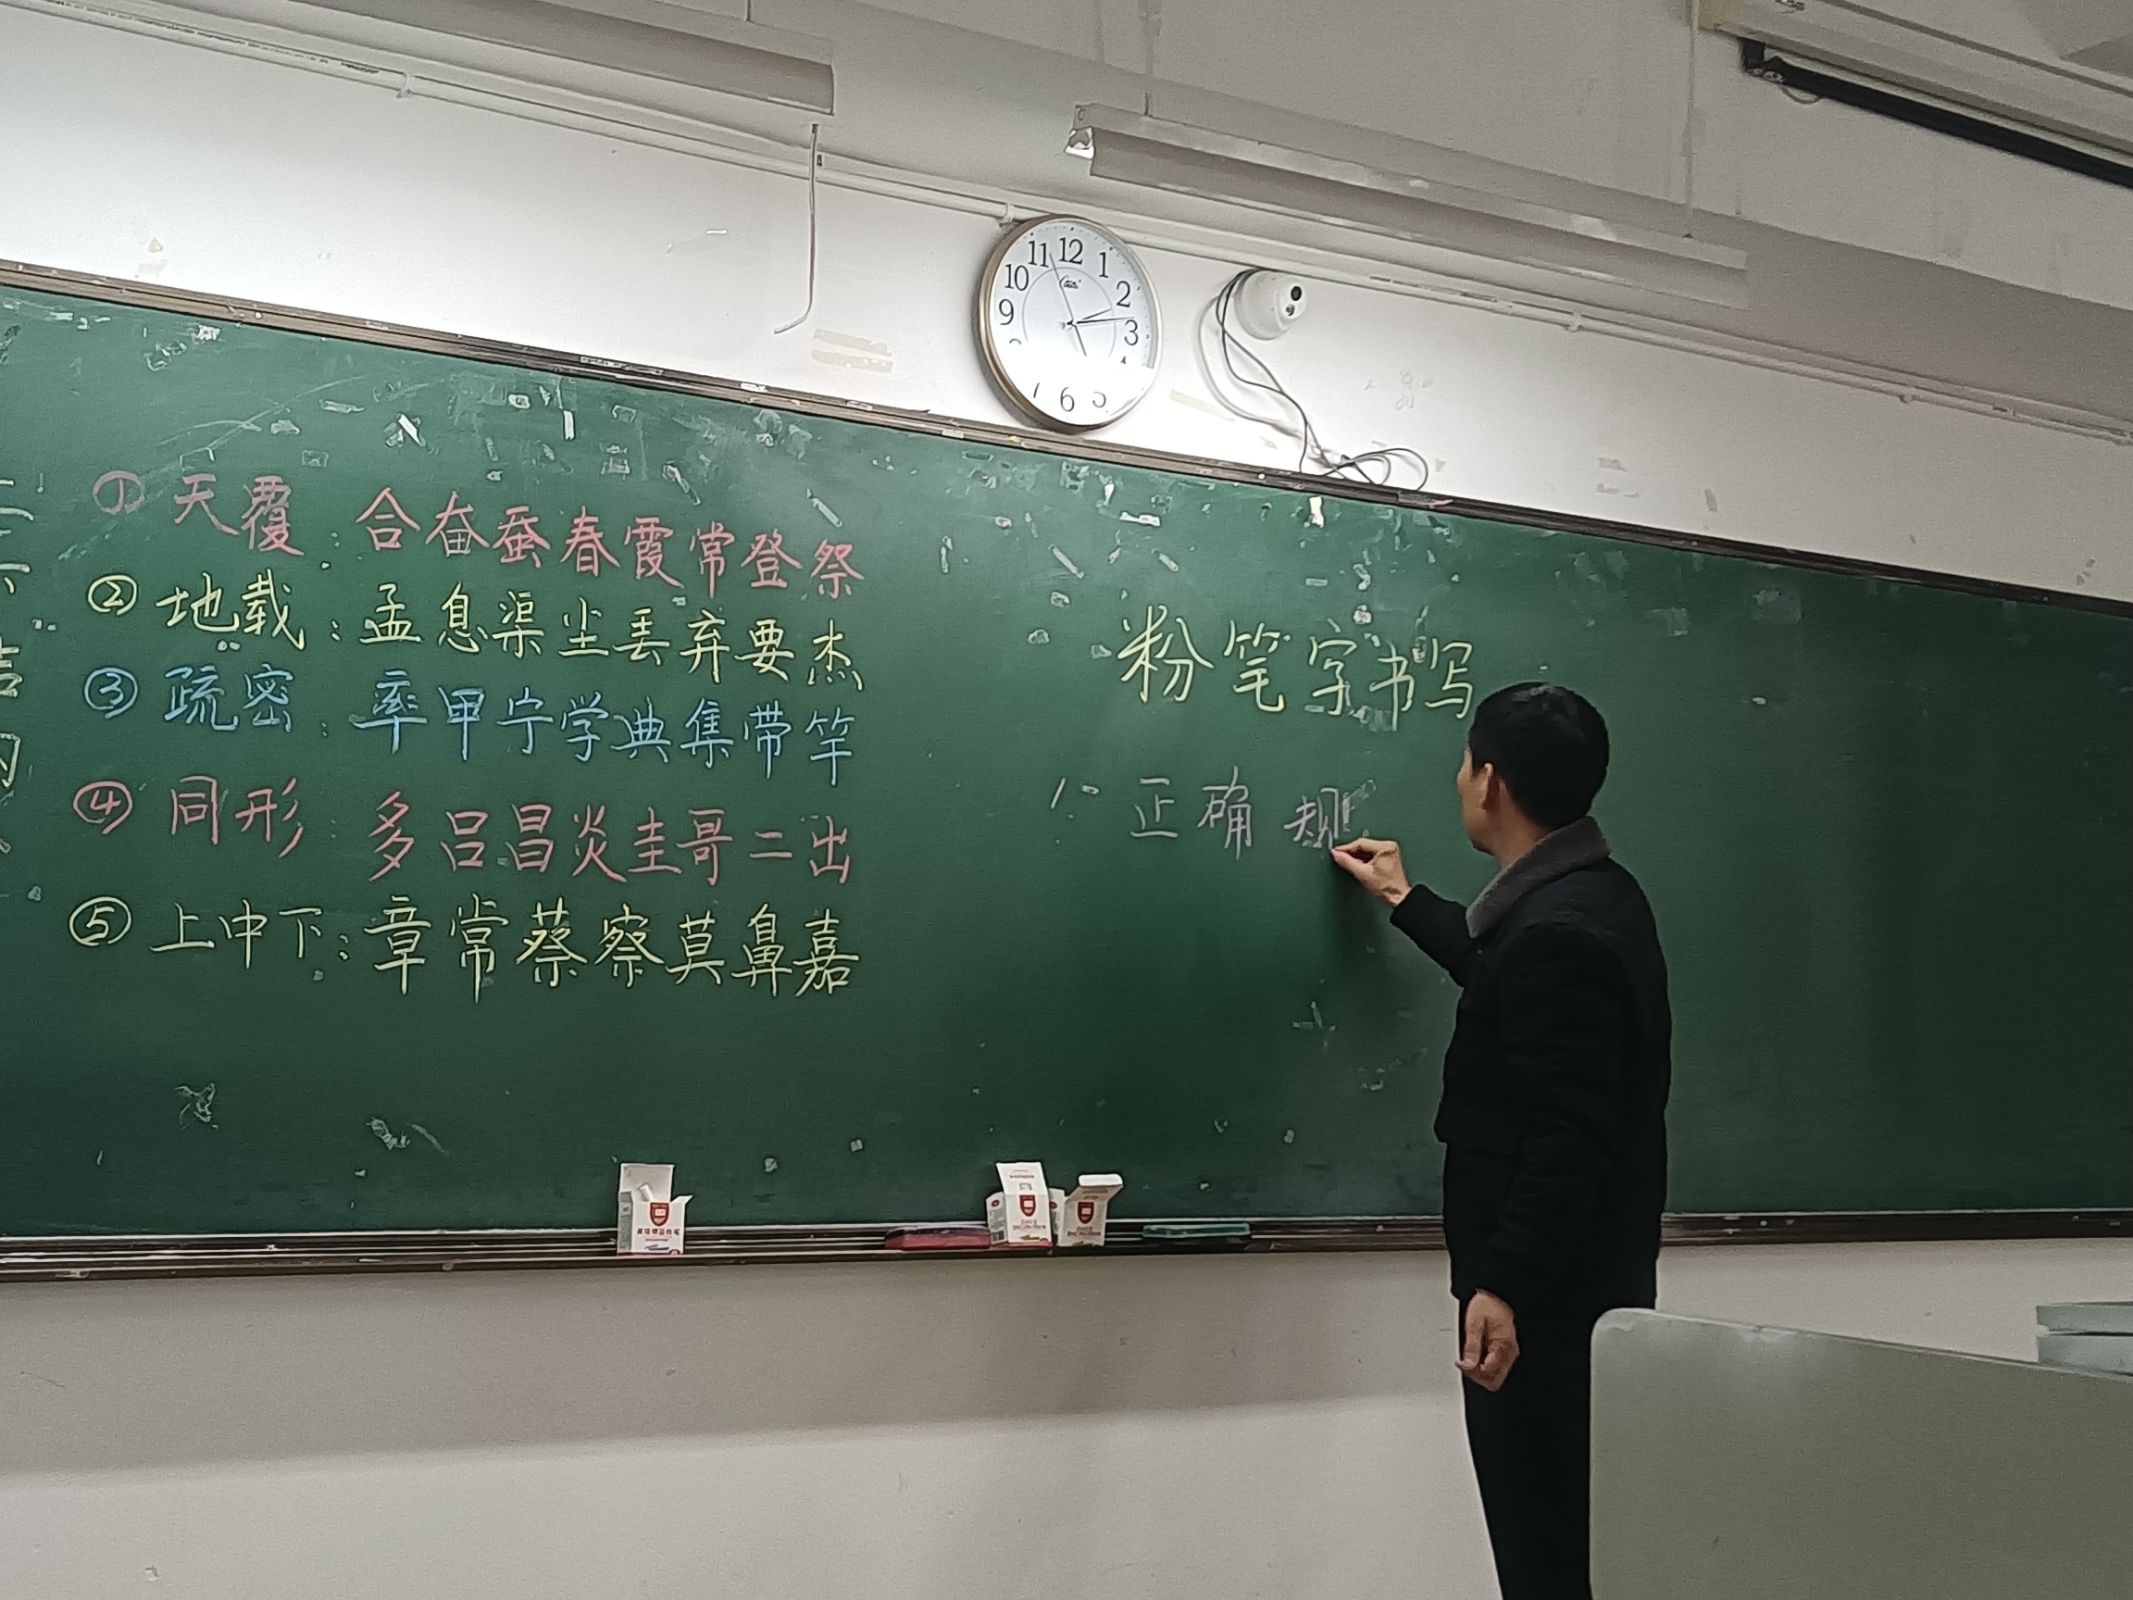 11 12 1
10 2
9 3
6
① 天覆：合奋蚕春霞常登祭
② 地载：孟息渠尘丢弃要杰
③ 疏密：率甲宁学典集带竿
④ 同形：多吕昌炎圭哥二出
⑤ 上中下：章常蔡察莫鼻嘉
粉笔字书写
1. 正确 规